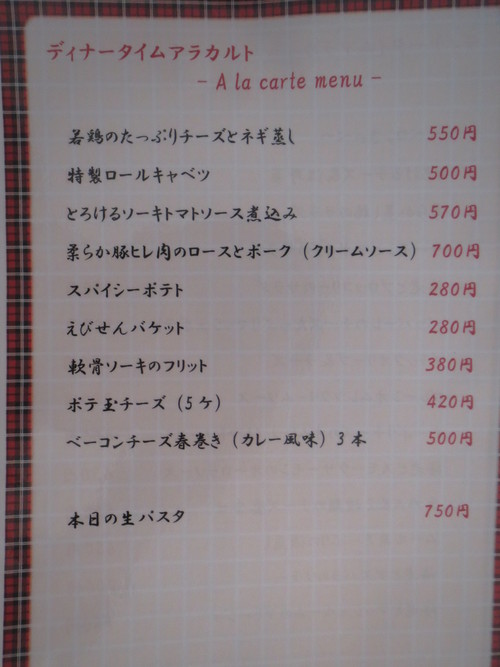 ディナータイムアラカルト
- A la carte menu -
若鶏のたっぷりチーズとネギ蒸し 550円
特製ロールキャベツ 500円
とろけるソーキトマトソース煮込み 570円
柔らか豚ヒレ肉のロースとポーク（クリームソース） 700円
スパイシーポテト 280円
えびせんバケット 280円
軟骨ソーキのフリット 380円
ポテ玉チーズ（5ケ） 420円
ベーコンチーズ春巻き（カレー風味）3本 500円
本日の生パスタ 750円